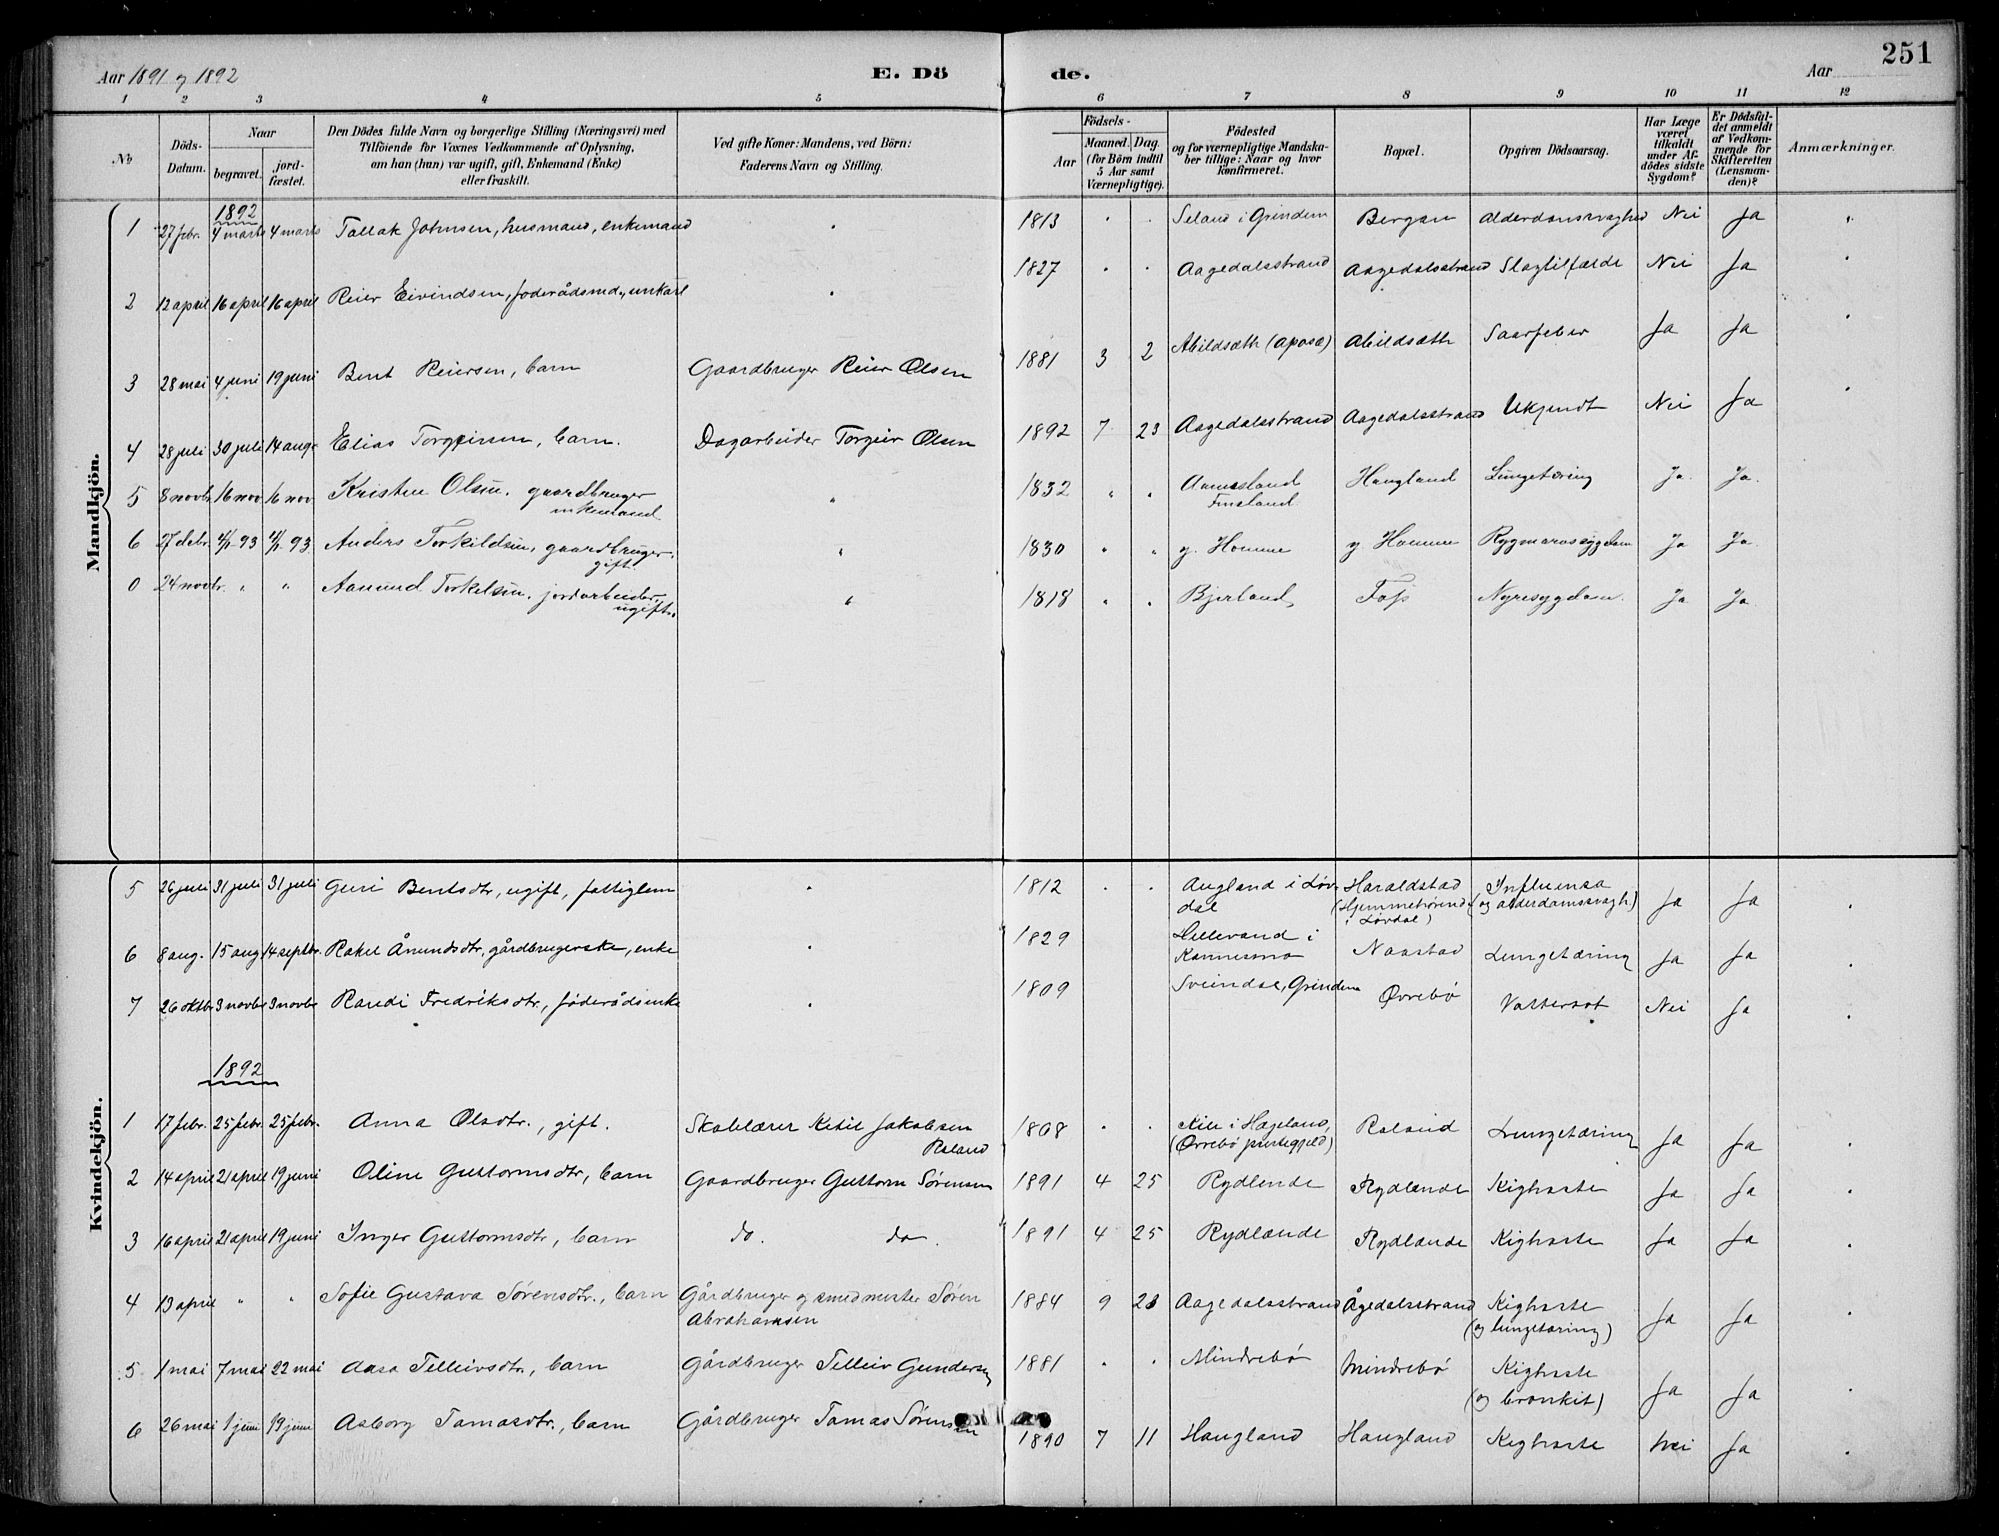 Aar 1891 og 1892 E. Dö de. Aar 251
1 2 3 4 5 6 7 8 9 10 11 12
No
Döds-Datum.
Naar
begravet.
jord-fæstet.
Den Dödes fulde Navn og borgerlige Stilling (Næringsvei) med
Tilföiende for Voxnes Vedkommende af Oplysning,
om han (hun) var ugift, gift, Enkemand (Enke)
eller fraskilt.
Ved gifte Koner: Mandens, ved Börn:
Faderens Navn og Stilling.
Födsels-
Aar
Maaned. Dag.
(for Börn indtil
5 Aar samt
Værnepligtige).
Födested
og for værnepligtige Mandska-
ber tillige: Naar og hvor
konfirmeret.
Bopæl.
Opgiven Dödsaarsag.
Har Læge
været
tilkaldt
under Af-
dödes sidste
Sygdom?
Er Dödsfal-
det anmeldt
af Vedkom-
mende for
Skifteretten
(Lensman-
den)?
Anmærkninger.
Mandkjön.
1892
1 27 febr. 4 marts 4 marts Tallak Johnsen, husmand, enkemand " 1813 " " Seland i Grindem Bergan Alderdomssvaghed Nei Ja "
2 12 april 16 april 16 april Reier Eivindsen, foderådsmd., unkarl " 1827 " " Aagedalsstrand Aagedalsstrand Slagtilfælde Nei Ja "
3 28 mai 4 juni 19 juni Bent Reiersen, barn Gaardbruger Reier Olsen 1881 3 2 Abildsæth (Aposæ) Abildsæth Saarfeber Ja Ja "
4 28 juli 30 juli 14 aug. Elias Torgeirsen, barn. Dagarbeider Torgeir Olsen 1892 7 23 Aagedalsstrand Aagedalsstrand Ukjendt Nei Ja
5 8 novbr. 16 nov. 16 nov Kristen Olsen. gaardbruger
enkemand " 1832 " " Aamesland
Finsland. Haugland Lungetæring Ja. Ja.
6 27 debr. 4/1-93 4/1-93 Anders Torkildsen, gaardbruger.
gift. " 1830 " " y. Homme y. Homme Rygmarvssygdom Ja Ja.
0 24 novbr. " " Aanund Torkelsen. jordarbeider,
ugift. " 1818 " " Bjerland, Foss Nyresygdom. Ja Ja.
Kvindekjön.
5 26 juli 31 juli 31 juli Guri Bentsdtr, ugift, fattiglem " 1812 " " Augland i Løv-
dal Haraldstad
(Hjemmehørende
i Løvdal) Influensa
(og alderdomssvagh) Ja Ja "
6 8 aug. 15 aug 14 septbr. Rakel Ånundsdtr, gårdbrugerske, enke " 1829 Hellevand i
Konnesmo Naastad Lungetæring Ja Ja "
7 26 oktbr 3 novbr 3 novbr Randi Fredriksdtr., föderådsenke " 1809 Sveindal, Grindem Øvrebø Vattersot Nei Ja "
1892
1 17 febr. 25 febr. 25 febr. Anna Olsdtr., gift. Skolelærer Ketil Jakobsen
Roland 1808 " " Kile i Hægeland,
(Øvrebø prestegjeld) Roland Lungetæring Ja Ja "
2 14 april 21 april 19 juni Oline Guttormsdtr, barn Gaardbruger Guttorm Sørensen 1891 4 25 Rydlende Rydlende Kighoste Ja Ja "
3 16 april 21 april 19 juni Inger Guttormsdtr, barn do. do. 1891 4 25 Rydlende Rydlende Kighoste Ja Ja "
4 13 april " " Sofie Gustava Sörensdtr., barn Gårdbruger og smedmester Søren
Abrahamsen 1884 9 23 Aagedalsstrand Ågedalsstrand Kighoste
(og lungetæring) Ja Ja "
5 1 mai 7 mai 22 mai Aasa Telleivsdtr., barn Gårdbruger Telleiv Gundersen 1881 " " Mindrebø Mindrebø Kighoste
(og bronkit) Ja Ja "
6 26 mai 1 juni 19 juni Asborg Tomasdtr., barn Gårdbruger Tomas Sørensen 1890 7 11 Haugland Haugland Kighoste Nei Ja "